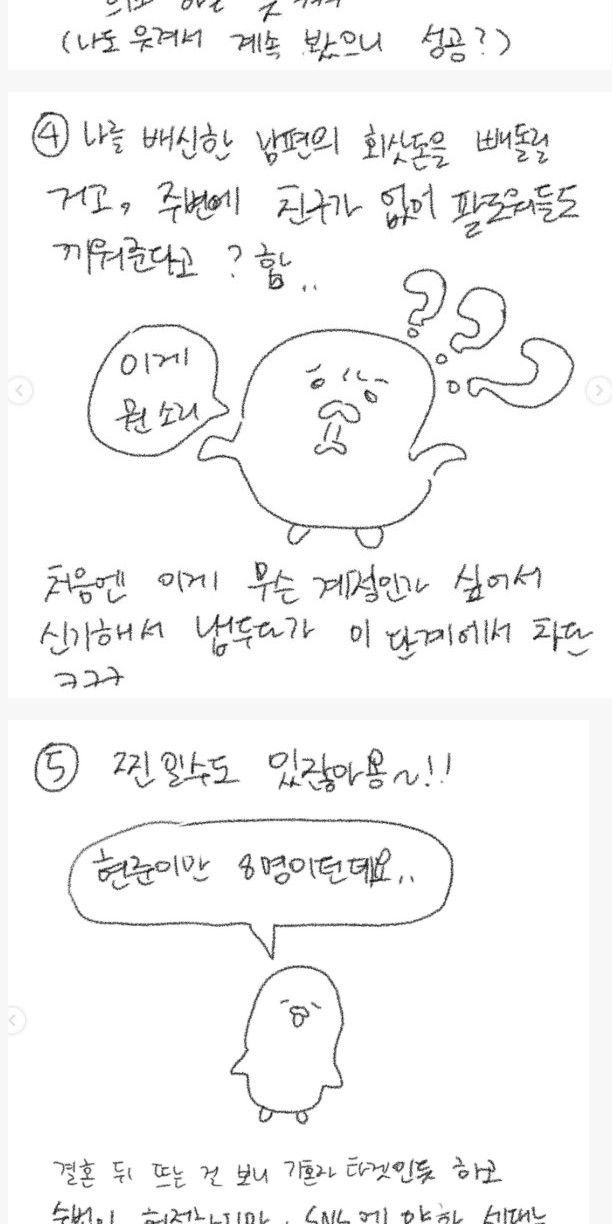 (나도 웃겨서 계속 봤으니 성공?)
④ 나를 배신한 남편의 회삿돈을 빼돌릴
거고, 주변에 친구가 없어 팔로워들도
끼워준다고? 함..
이게
뭔 소리
처음엔 이게 무슨 계정인가 싶어서
신기해서 냅두다가 이 단계에서 차단
ㅋㅋㅋ
⑤ 찐일수도 있잖아용~!!
현준이만 8명이던데요..
결혼 뒤 뜨는 건 보니 기혼자 타겟인듯 하고